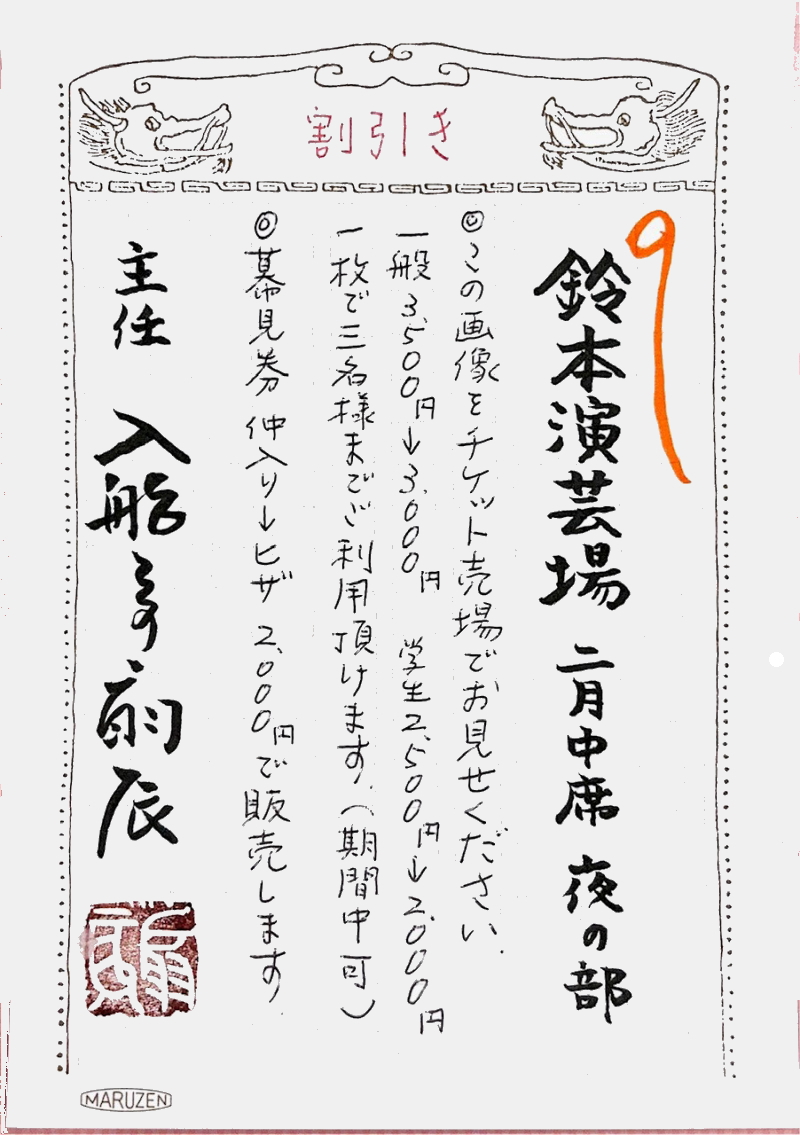 割引き
鈴本演芸場 二月中席 夜の部
◎この画像をチケット売場でお見せください.
一般3,500円→3,000円 学生2,500円→2,000円
一枚で三名様までご利用頂けます.(期間中可)
◎幕見券 仲入り→ヒザ 2,000円で販売します.
主任 入船亭扇辰
扇辰
MARUZEN